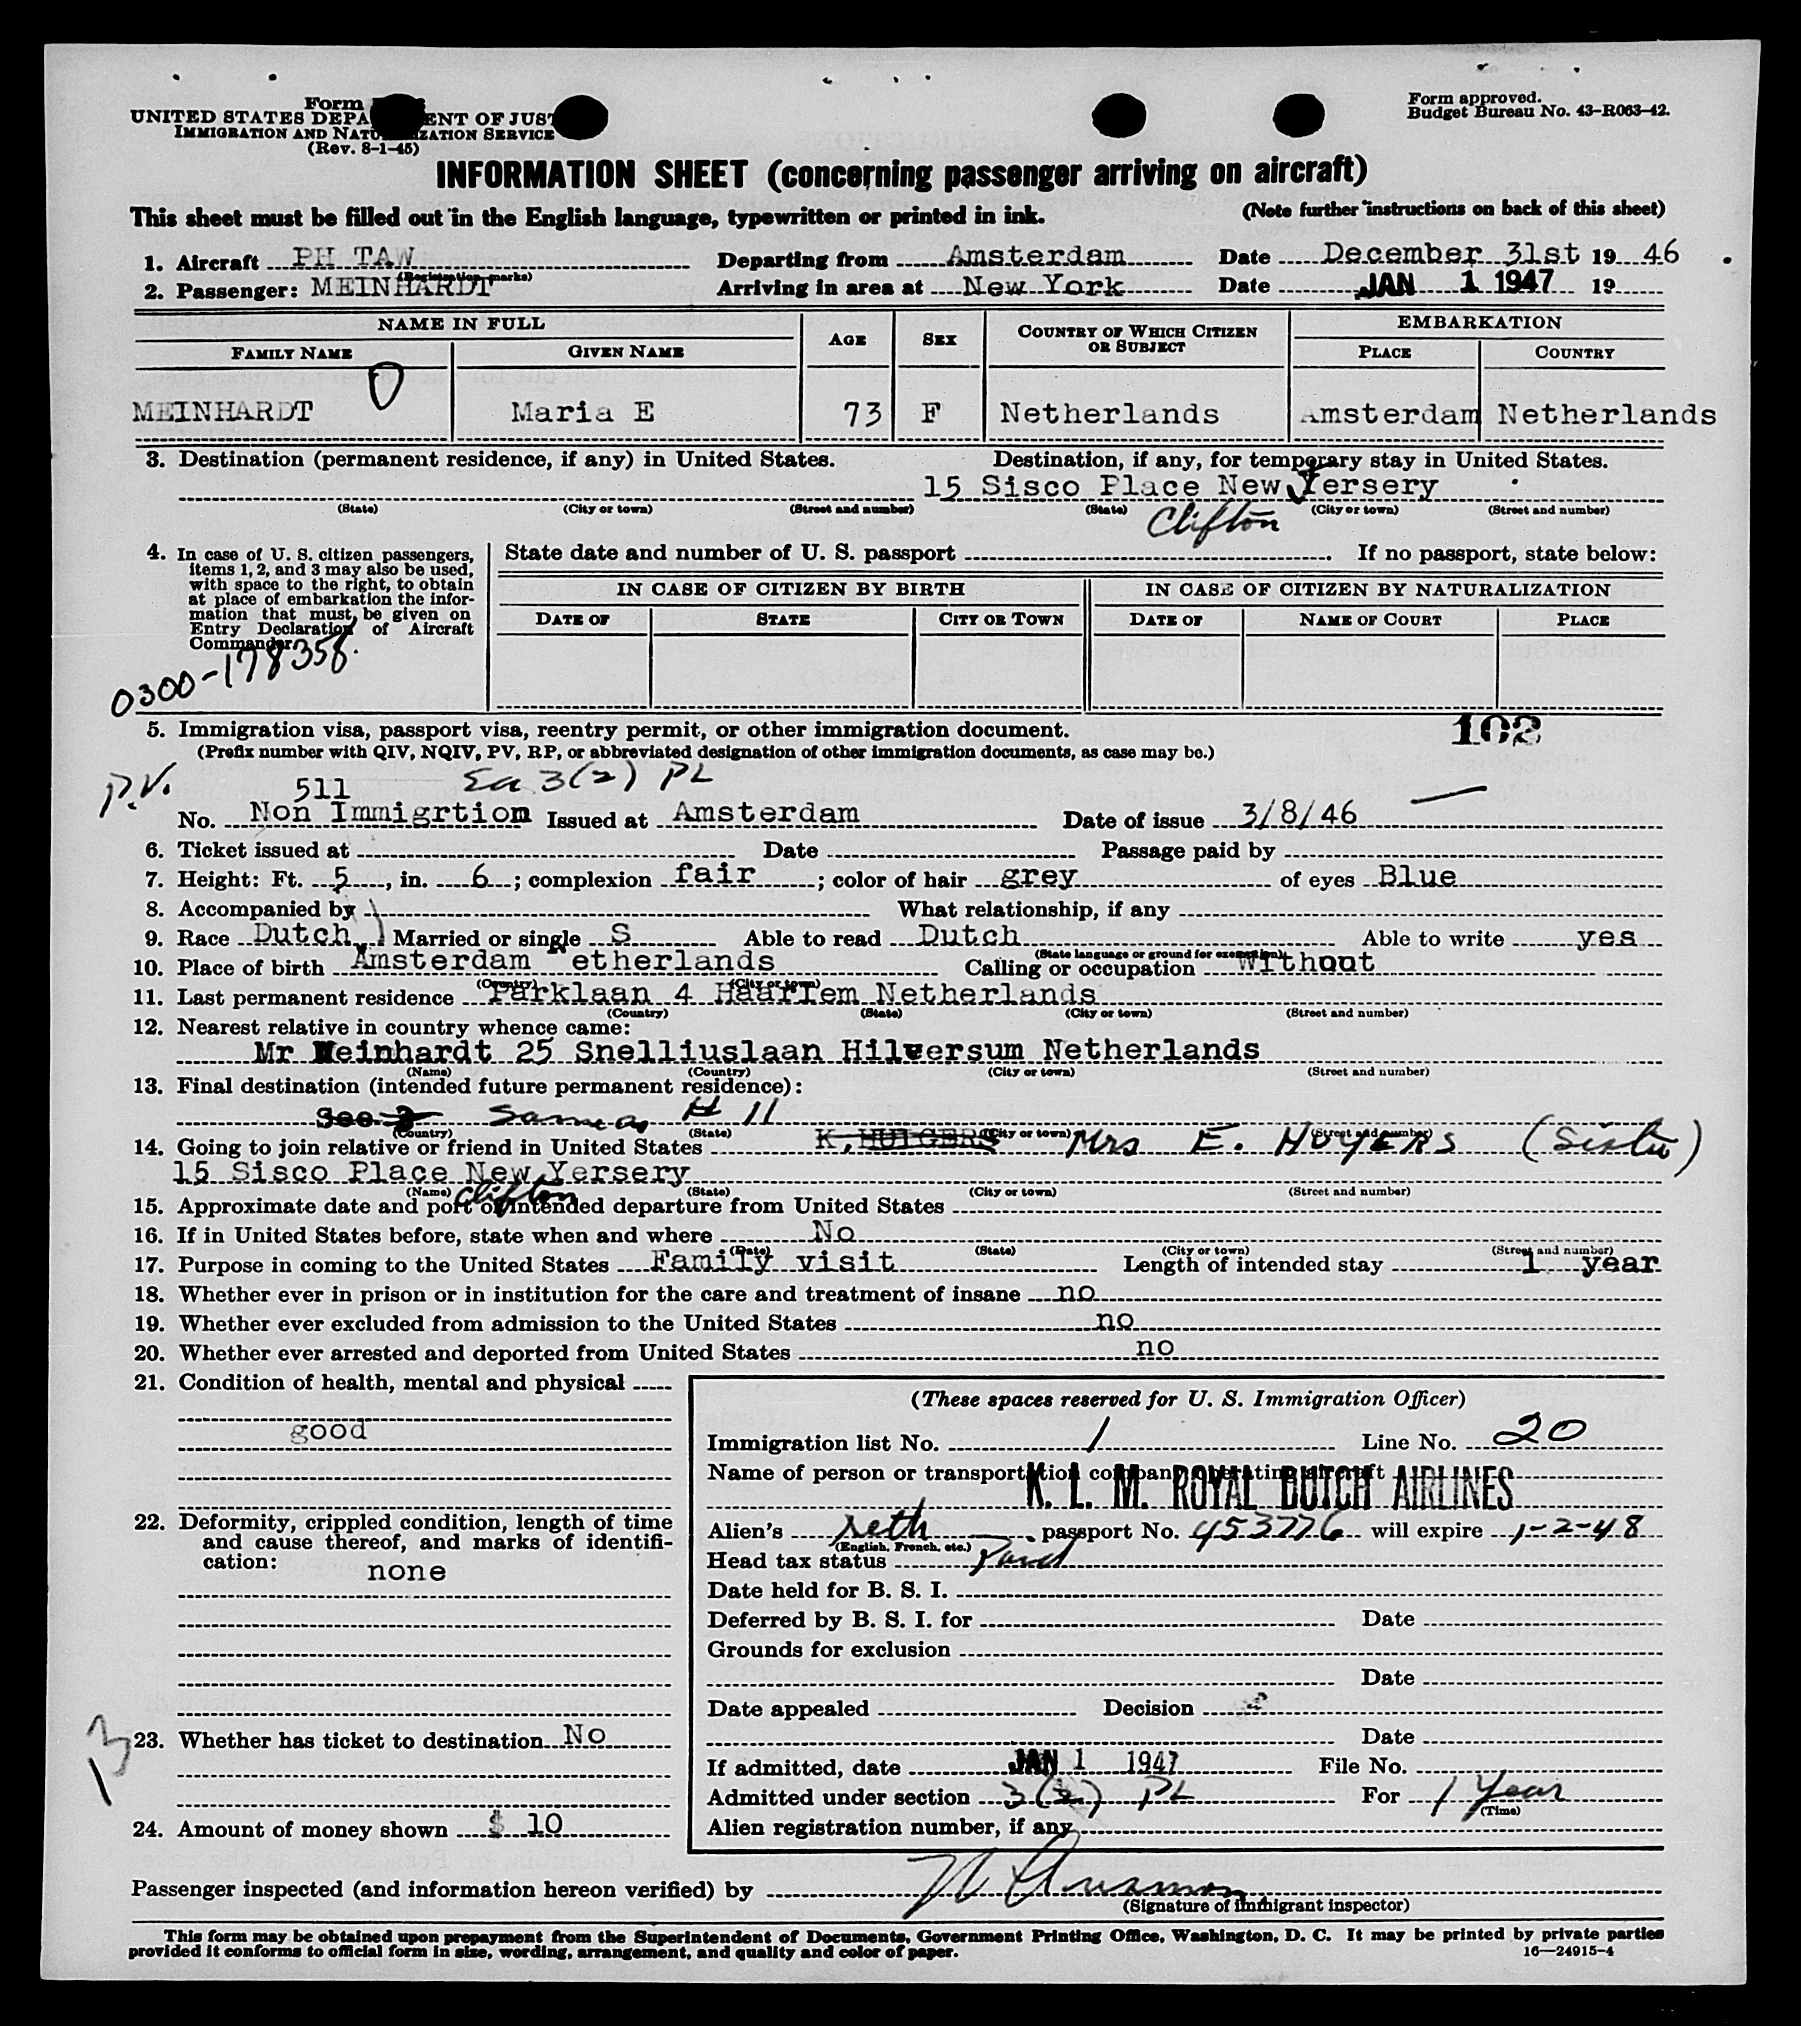 Form
UNITED STATES DEPA ENT OF JUST
IMMIGRATION AND NATU IZATION SERVICE
(Rev. 8-1-45)
Form approved.
Budget Bureau No. 43-R063-42.
INFORMATION SHEET (concerning passenger arriving on aircraft)
This sheet must be filled out in the English language, typewritten or printed in ink. (Note further instructions on back of this sheet)
1. Aircraft PH TAW Departing from Amsterdam Date December 31st 19 46
(Registration marks)
2. Passenger: MEINHARDT Arriving in area at New York Date JAN 1 1947 19
NAME IN FULL AGE SEX COUNTRY OF WHICH CITIZEN OR SUBJECT EMBARKATION
FAMILY NAME GIVEN NAME PLACE COUNTRY
MEINHARDT Maria E 73 F Netherlands Amsterdam Netherlands
3. Destination (permanent residence, if any) in United States. Destination, if any, for temporary stay in United States.
15 Sisco Place New Jersery
(State) (City or town) (Street and number) (State) (City or town) (Street and number)
Clifton
4. In case of U. S. citizen passengers, items 1, 2, and 3 may also be used, with space to the right, to obtain at place of embarkation the information that must be given on Entry Declaration of Aircraft Commander.
0300-178358.
State date and number of U. S. passport . If no passport, state below:
IN CASE OF CITIZEN BY BIRTH IN CASE OF CITIZEN BY NATURALIZATION
DATE OF STATE CITY OR TOWN DATE OF NAME OF COURT PLACE
5. Immigration visa, passport visa, reentry permit, or other immigration document. 102
(Prefix number with QIV, NQIV, PV, RP, or abbreviated designation of other immigration documents, as case may be.)
P.V. 511 3(2) PL
No. Non Immigrtion Issued at Amsterdam Date of issue 3/8/46
6. Ticket issued at Date Passage paid by
7. Height: Ft. 5, in. 6; complexion fair; color of hair grey of eyes Blue
8. Accompanied by What relationship, if any
9. Race Dutch Married or single S Able to read Dutch Able to write yes
(State language or ground for exemption)
10. Place of birth Amsterdam etherlands Calling or occupation Without
(Country) (City or town)
11. Last permanent residence Parklaan 4 Haarlem Netherlands
(Country) (State) (City or town) (Street and number)
12. Nearest relative in country whence came:
Mr Meinhardt 25 Snelliuslaan Hilversum Netherlands
(Name) (Country) (City or town) (Street and number)
13. Final destination (intended future permanent residence):
See 3 Same as # 11
(Country) (State) (City or town) (Street and number)
14. Going to join relative or friend in United States K. HUIGERS Mrs E. HUYERS (Sister)
15 Sisco Place New Yersery
(Name) Clifton (State) (City or town) (Street and number)
15. Approximate date and port of intended departure from United States
16. If in United States before, state when and where No
(Date) (State) (City or town) (Street and number)
17. Purpose in coming to the United States Family visit Length of intended stay 1 year
18. Whether ever in prison or in institution for the care and treatment of insane no
19. Whether ever excluded from admission to the United States no
20. Whether ever arrested and deported from United States no
21. Condition of health, mental and physical
good
22. Deformity, crippled condition, length of time and cause thereof, and marks of identification:
none
13
23. Whether has ticket to destination No
24. Amount of money shown $ 10
(These spaces reserved for U. S. Immigration Officer)
Immigration list No. 1 Line No. 20
Name of person or transportation company operating aircraft
K. L. M. ROYAL DUTCH AIRLINES
Alien's Neth passport No. 453776 will expire 1-2-48
(English, French, etc.)
Head tax status Paid
Date held for B. S. I.
Deferred by B. S. I. for Date
Grounds for exclusion
Date
Date appealed Decision
Date
If admitted, date JAN 1 1947 File No.
Admitted under section 3(2) PL For 1 Year
(Time)
Alien registration number, if any
Passenger inspected (and information hereon verified) by
(Signature of immigrant inspector)
This form may be obtained upon prepayment from the Superintendent of Documents, Government Printing Office, Washington, D. C. It may be printed by private parties
provided it conforms to official form in size, wording, arrangement, and quality and color of paper. 16—24915-4